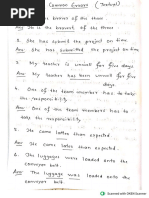 Common Errors (Textual)
1. It is braver of the three
Ans: It is the bravest of the three
2. She has submit the project on time
Ans: She has submitted the project on time
3. My teacher is unwell for five days
Ans: My teacher has been unwell for five days
4. One of the team member has to take the responsibility.
Ans: One of the team members has to take the responsibility.
5. She came latter than expected.
Ans: She came later than expected.
The luggages were loaded onto the conveyor belt.
Ans: The luggage was loaded onto the conveyor belt.
Scanned with OKEN Scanner